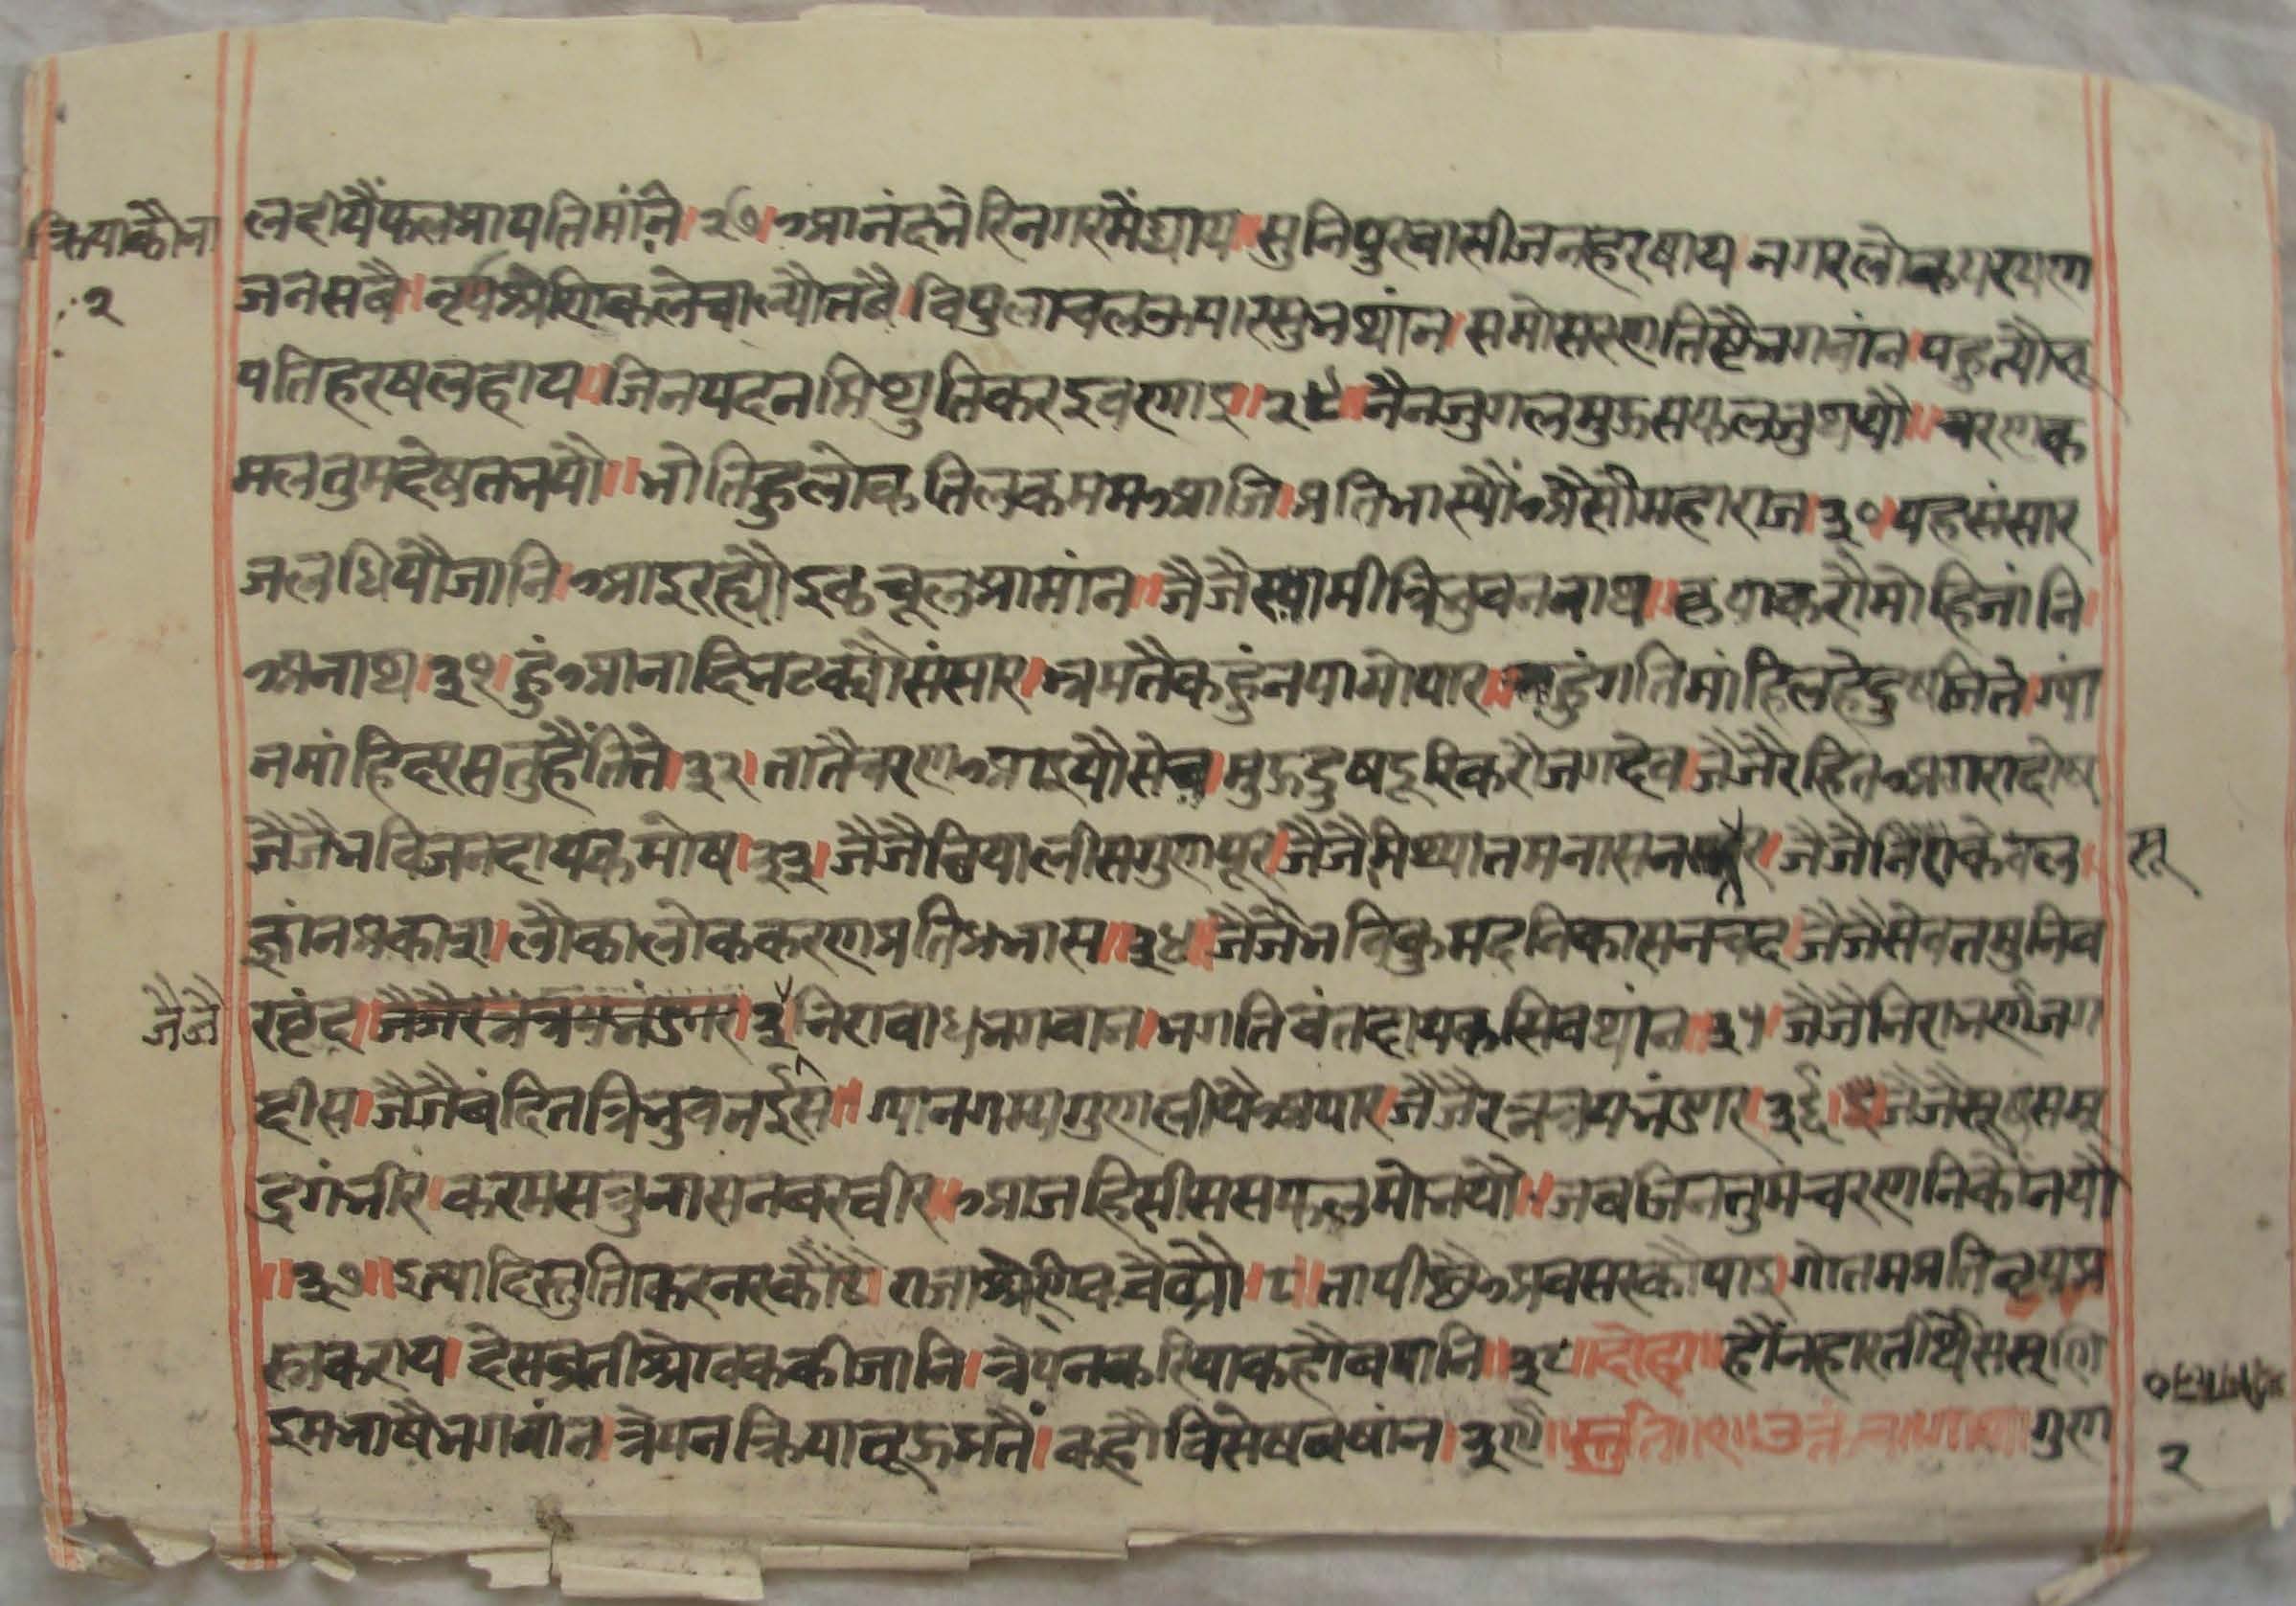 क्रियाकौ भा
२
लदीयैंफलप्रापतिमांनै।२७।आनंदभेरिनगरमेंद्याय॥सुनिपुरवासीजनहरषाय।नगरलोकपरयण
जनसबै॥नृपश्रेणिकलेचाल्यौतबै।विपुलाचलऊपारसुभथांन।समोसरणतिष्टैभगवांन।पहुत्यौभू
पतिहरषलहाय॥जिनपदनमिथुतिकरइवणाइ॥२८॥नैनजुगलमुऊसफलजुथयौ॥चरणक
मलतुमदेषतभयौ॥भोतिहुलोकतिलकममआजि।प्रतिभास्यौंअैसौमहाराज।३०।यहसंसार
जलधियौजानि।आइरह्यौइकचूलप्रामांन॥जैजैस्वामीत्रिभुवननाथ॥कृपाकरौमोहिजांनि
अनाथ।३१।हुंअनादिभटक्यौसंसार।भ्रमतैकहुंनपायोपार॥चहुंगतिमांहिलहेदुषजिते।ग्यां
नमांहिदरसतुहैंतिते।३२।तातैचरणआइयौसेव।मुऊदुषदूरिकरौजगदेव।जैजैरहितअठारादोष
जैजैभविजनदायकमोष।३३।जैजैछियालीसगुणपूर।जैजैमिथ्यातमनासनसूर।जैजैनिराकेवल
सू
ज्ञांनप्रकास।लोकालोककरणप्रतिभास॥३४॥जैजैभविकुमदविकासनचंद।जैजैसेवतमुनिव
रवृंद।जैजैरत्नत्रयभंडार।३।निरावाधभगवान।भगतिवंतदायकसिवथांन॥३५।जैजैनिराभर्णजग
जैजै
दीस।जैजैबंदितत्रिभुवनईस॥ग्यानगम्यगुणलीयैअपार।जैजैरत्नत्रयभंडार।३६।जैजैसुषसमू
द्रगंभीर।करमसत्रुनासनवरवीर॥आजहिसीससफलमोभयौ॥जबजिनतुमचरणनिकौनयौ
॥३७॥इत्यादिस्तुतिकरनरकोठै।राजाश्रेणिकबैठ्यौ॥तापीछैअवसरकौपाइ।गोतमप्रतिनृपप्र
स्नकराय।देसव्रतीश्रावककीजानि।त्रेपनकरियाकहौबषानि॥३८॥दोहा॥हौंनहारतीर्थेससुणि
इमभाषैभगवांन।त्रेपनक्रियातूऊप्रतैं।कहौविसेषबषांन।३९॥ गुण
२